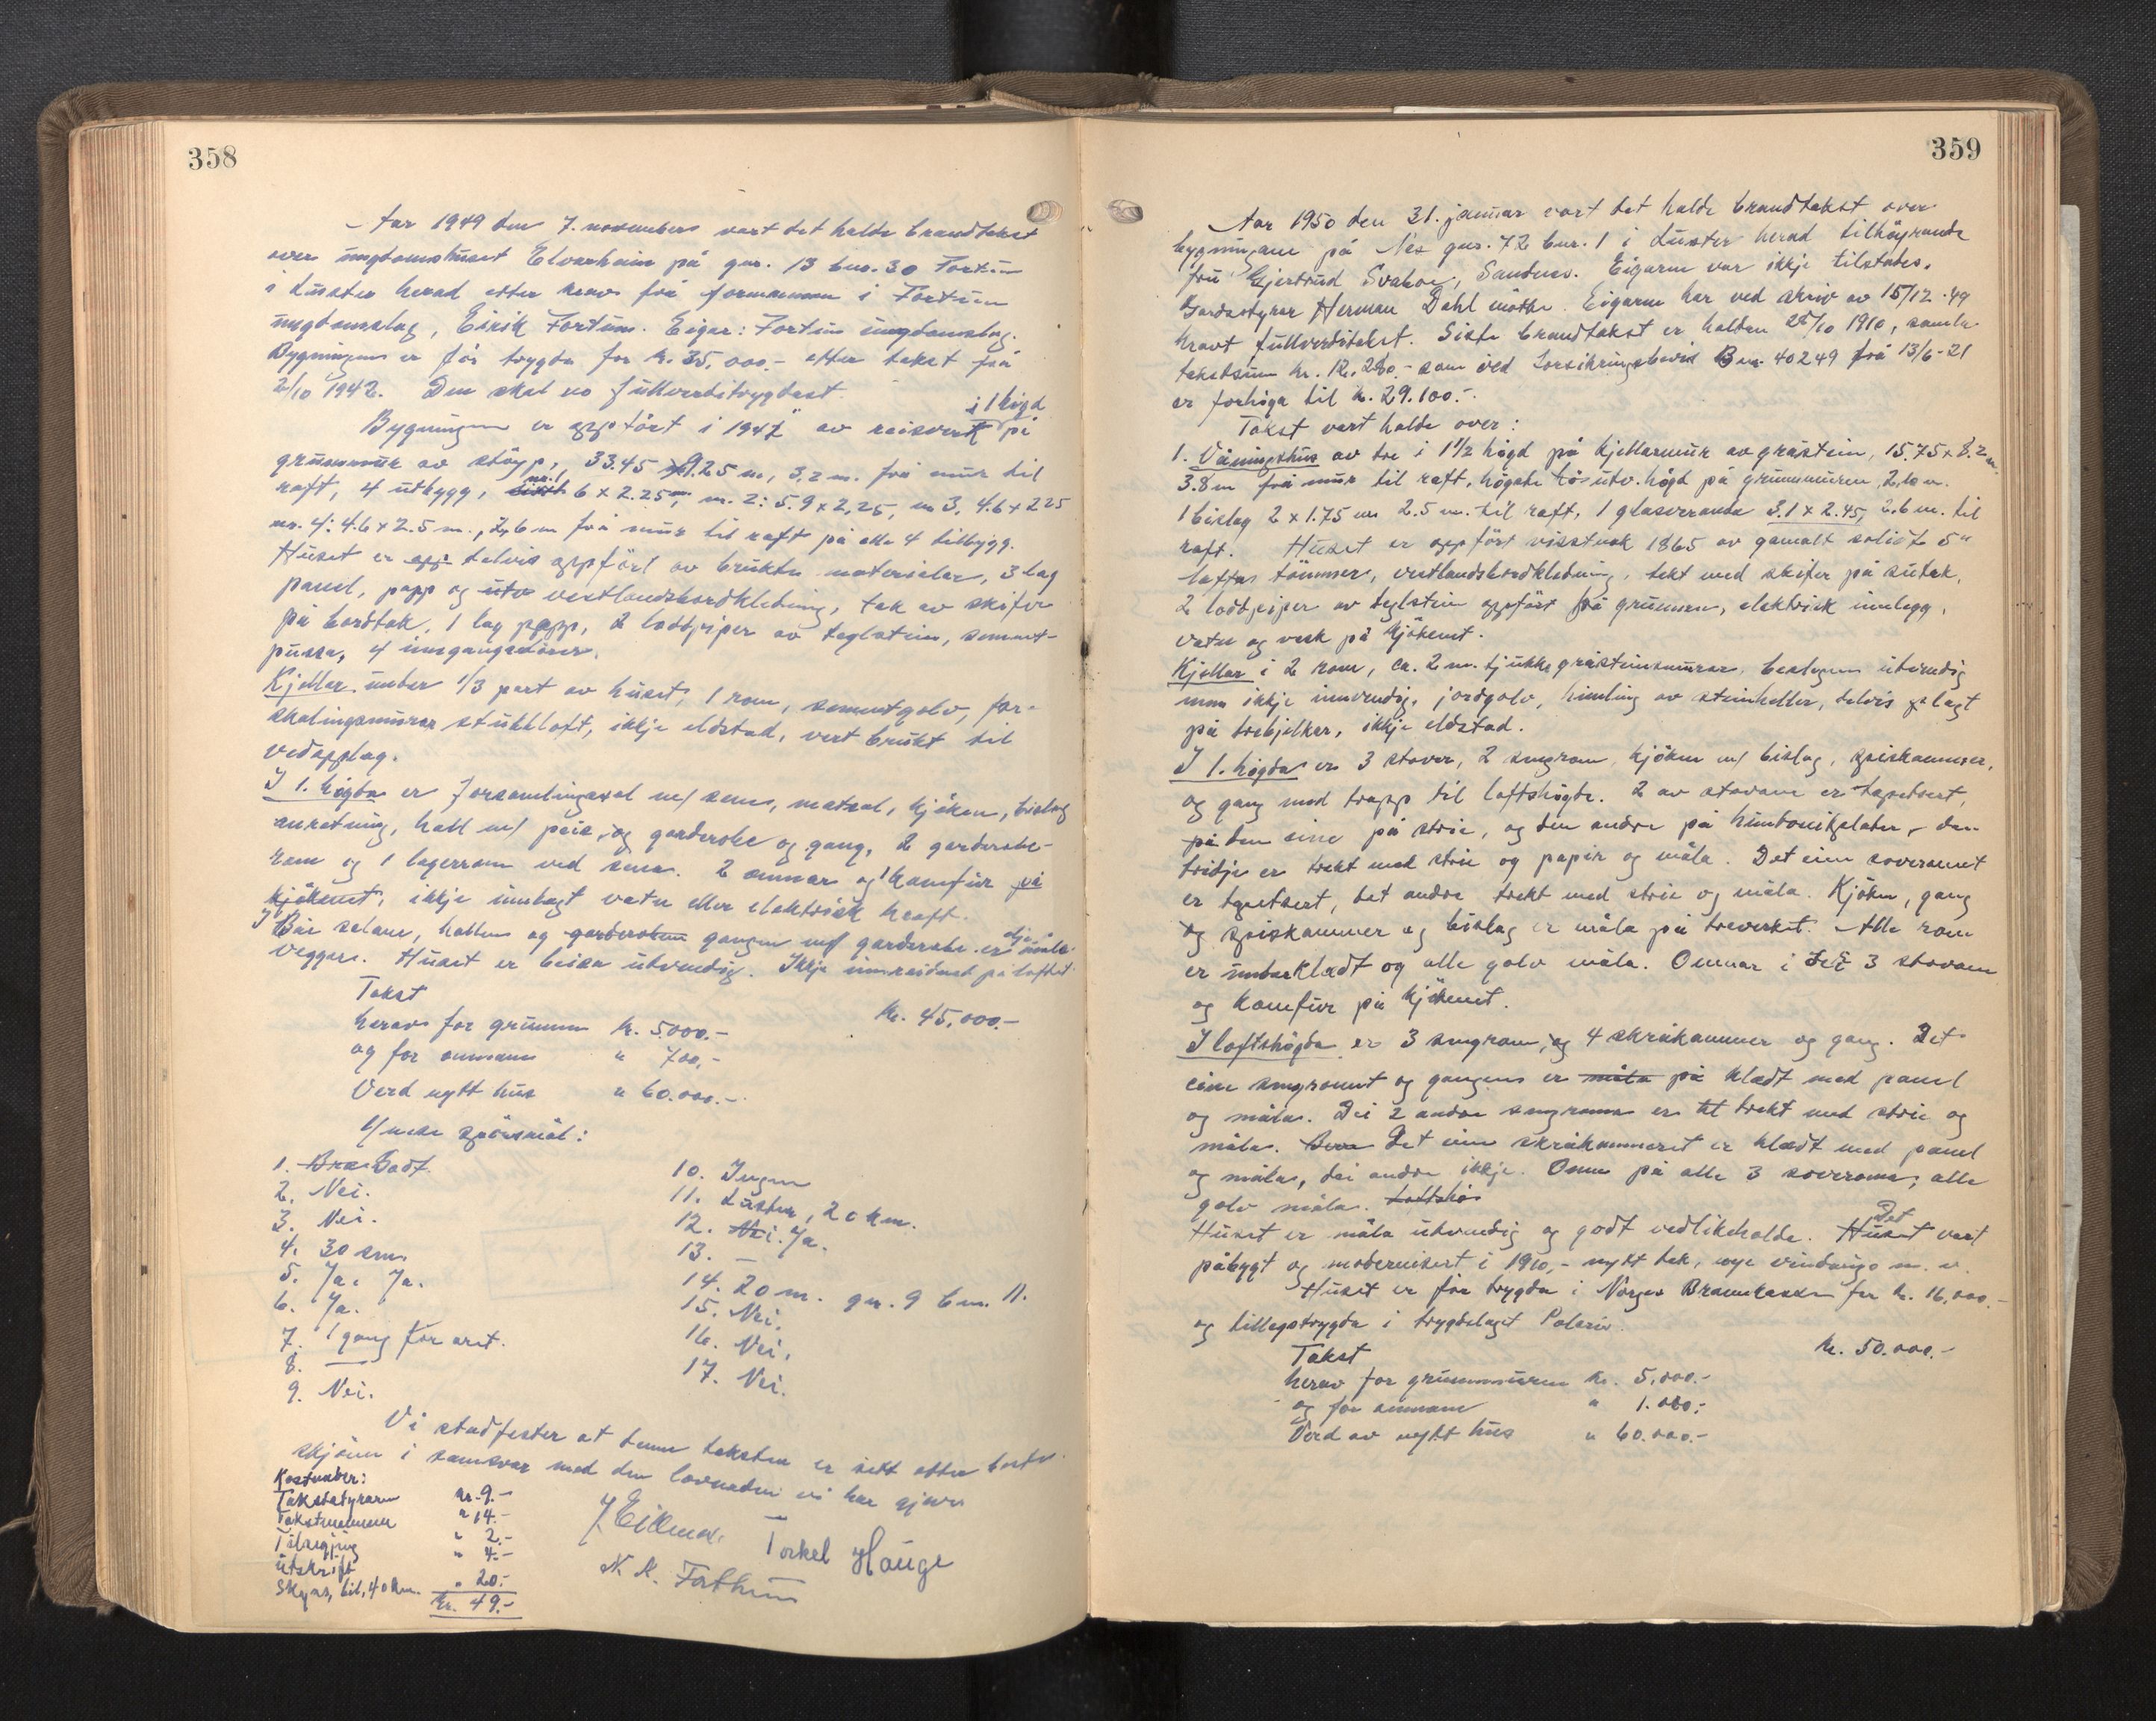 358
Aar 1949 den 7. november vart det halde brandtakst
over ungdomshuset Elvarheim på gnr. 13 bnr. 30 Fortun
i Luster herad etter krav frå formannen i Fortun
ungdomslag, Eirik Fortun. Eigar: Fortun ungdomslag.
Bygningen er för trygda for kr. 35.000.- etter takst frå
2/10 1942. Den skal no fullverditrygdast.
i 1 högd
Bygningen er uppfört i 1947 av reisverk på
grunnmur av stöyp, 33.45 x 9.25 m, 3,2 m. frå mur til
raft, 4 utbygg, nr. 1 6 x 2.25 m, nr. 2: 5.9 x 2,25, nr 3, 4.6 x 2.25
nr. 4: 4.6 x 2.5 m., 2,6 m frå mur til raft på alle 4 tilbygg.
Huset er delvis uppfört av brukte materialer, 3 lag
panel, papp og vestlandsbordkledning, tak av skifer
på bordtak, 1 lag papp, 2 loddpiper av teglstein, sement-
pussa, 4 inngangsdörer.
Kjellar under 1/3 part av huset, 1 rom, sementgolv, for-
skalingsmurar stukkloft, ikkje eldstad, vert brukt til
vedupplag.
I 1. högda er forsamlingssal m/ scene, matsal, kjöken, bislag
anretning, hall m/ peis, og garderobe og gang, 2 garderobe-
rom og 1 lagerrom ved scena. 2 omnar og 1 komfur på
kjökenet, ikkje innlagt vatn eller elektrisk kraft.
I Båe salane, hallen og garderoben gangen m/ garderobe er olje måla
veggar. Huset er beisa utvendig. Ikkje innreidned på loftet.
Takst kr. 45.000.-
herav for grunnen kr. 5000.-
og for omnane " 700,-
Verd nytt hus " 60.000.-
Ymse spörsmål:
1. Bra Godt.
2. Nei.
3. Nei.
4. 30 cm
5. Ja. Ja.
6. Ja.
7. 1 gang for året.
8. —
9. Nei.
10. Ingen
11. Luster, 20 km.
12. Nei. Ja.
13. —
14. 20 m. gnr. 9 bnr. 11.
15. Nei.
16. Nei.
17. Nei.
Vi stadfester at denne taksten er sett etter beste
skjönn i samsvar med den lovnaden vi har gjeve
Kostnader:
Takststyraren kr. 9.-
Takstmennene " 14.-
Tilsegjing " 2.-
Utskrift " 4.-
Skyss, bil, 40 km. " 20.-
kr. 49.-
Torkel Hauge
N. K. Forthun
359
Aar 1950 den 31. januar vart det halde brandtakst over
bygningane på Nes gnr. 72 bnr. 1 i Luster herad tilhöyrande
fru Gjertrud Svahoe, Sandnes. Eigaren var ikkje tilstades.
Gardsstyrar Herman Dahl mötte. Eigaren har ved skriv av 15/12-49
kravt fullverditakst. Siste brandtakst er halden 28/10 1910, samla
takstsum kr. 12.280.- som ved Forsikringsbevis B nr. 40249 frå 13/6-21
er forhöga til kr. 29.100.-
Takst vart halde over:
1. Våningshus av tre i 1 1/2 högd på kjellarmur av gråstein, 15.75 x 8.2 m
3.8 m frå mur til raft, högste utv. högd på grunnmuren 2,10 m.
1 bislag 2 x 1.75 m 2.5 m. til raft, 1 glasveranda 3.1 x 2.45, 2.6 m. til
raft. Huset er uppfört visstnok 1865 av gamalt solidt 5"
lafta tömmer, vestlandsbordkledning, tekt med skifer på sutak,
2 loddpiper av teglstein uppfört frå grunnen, elektrisk innlegg,
vatn og vask på kjökenet.
Kjellar i 2 rom, ca. 2 m. tjukke gråsteinsmurar, beslegne utvendig
men ikkje innvendig, jordgolv, himling av steinheller, delvis lagt
på trebjelkar, ikkje eldstad.
I 1. högda er 3 stover, 2 sengrom, kjöken m/ bislag, spiskammer,
og gang med trapp til loftshögde. 2 av stovane er tapetsert,
på den eine på strie, og den andre på huntonitplater, den
tridje er trekt med strie og papir og måla. Det eine soverommet
er tapetsert, det andre trekt med strie og måla. Kjöken, gang
og spiskammer og bislag er måla på treverket. Alle rom
er underkledt og alle golv måla. Omnar i dei 3 stovane
og komfur på kjökenet.
I loftshögda er 3 sengrom, og 4 skråkammer og gang. Det
eine sengrommet og gangen er måla på kledt med panel
og måla. Dei 2 andre sengromma er trekt med strie og
måla. Det eine skråkammeret er kledt med panel
og måla, dei andre ikkje. Omn på alle 3 soveromma, alle
golv måla. Loftshö
Huset er måla utvendig og godt vedlikehalde. Huset Det vart
påbygt og modernisert i 1910,- nytt tak, nye vindaugo m. v.
Huset er för trygda i Norges Brannkasse for kr. 16.000.-
og tilleggstrygda i trygdelaget Polaris.
Takst kr. 50.000.-
herav for grunnmuren kr. 5.000.-
og for omnane " 1.000.-
Verd av nytt hus " 60.000.-